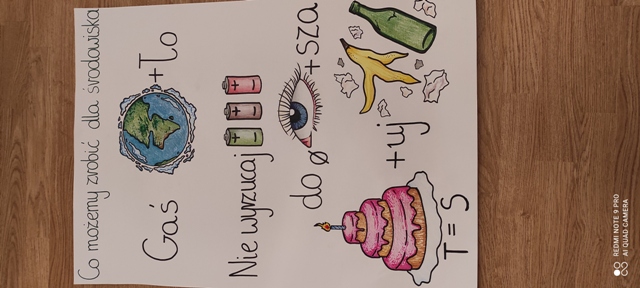 Co możemy zrobić dla środowiska
Gaś +ło
Nie wyrzucaj + - + - + -
do ø +sza
+uj
T = S
REDMI NOTE 9 PRO
AI QUAD CAMERA